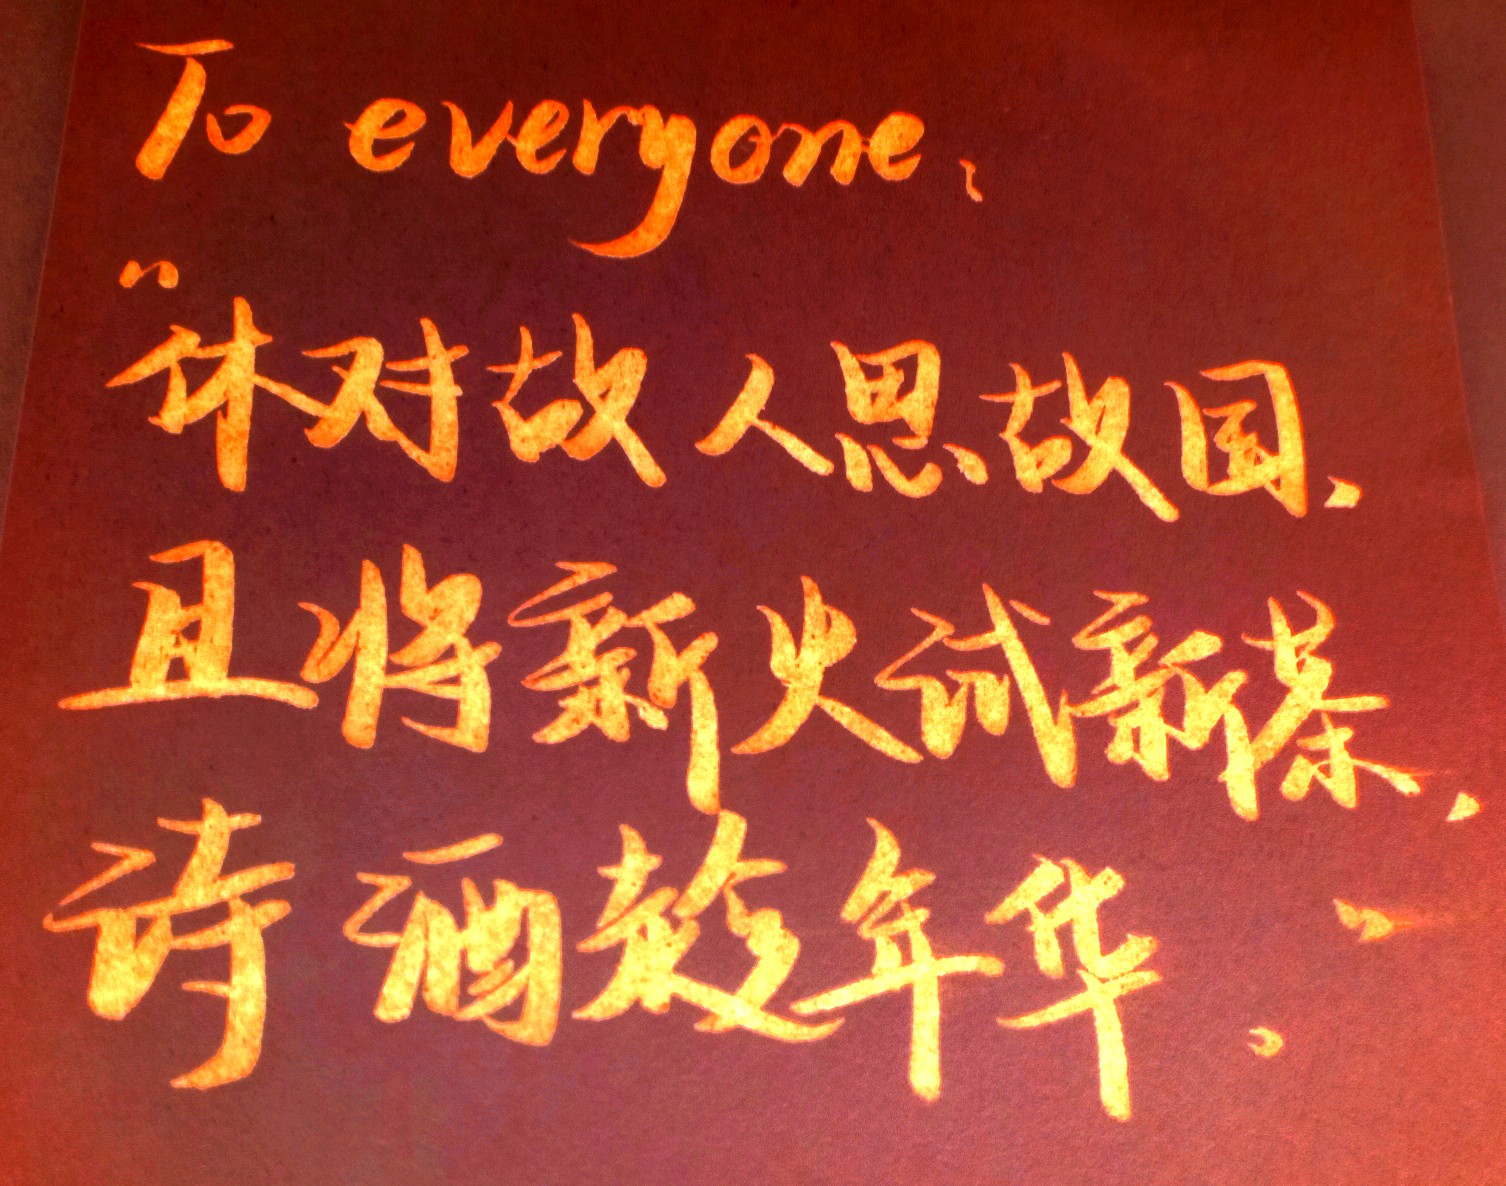 To everyone,
“休对故人思故国,
且将新火试新茶,
诗酒趁年华。”